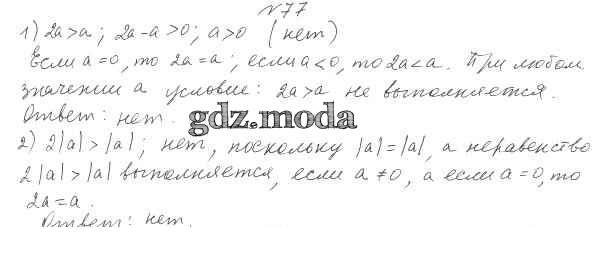 №77
1) 2a>a; 2a-a>0; a>0 (нет)
Если a=0, то 2a=a; если a<0, то 2a<a. При любом
значении a условие: 2a>a не выполняется.
Ответ: нет.
gdz.moda
2) 2|a|>|a|; нет, поскольку |a|=|a|, а неравенство
2|a|>|a| выполняется, если a≠0, а если a=0, то
2a=a.
Ответ: нет.